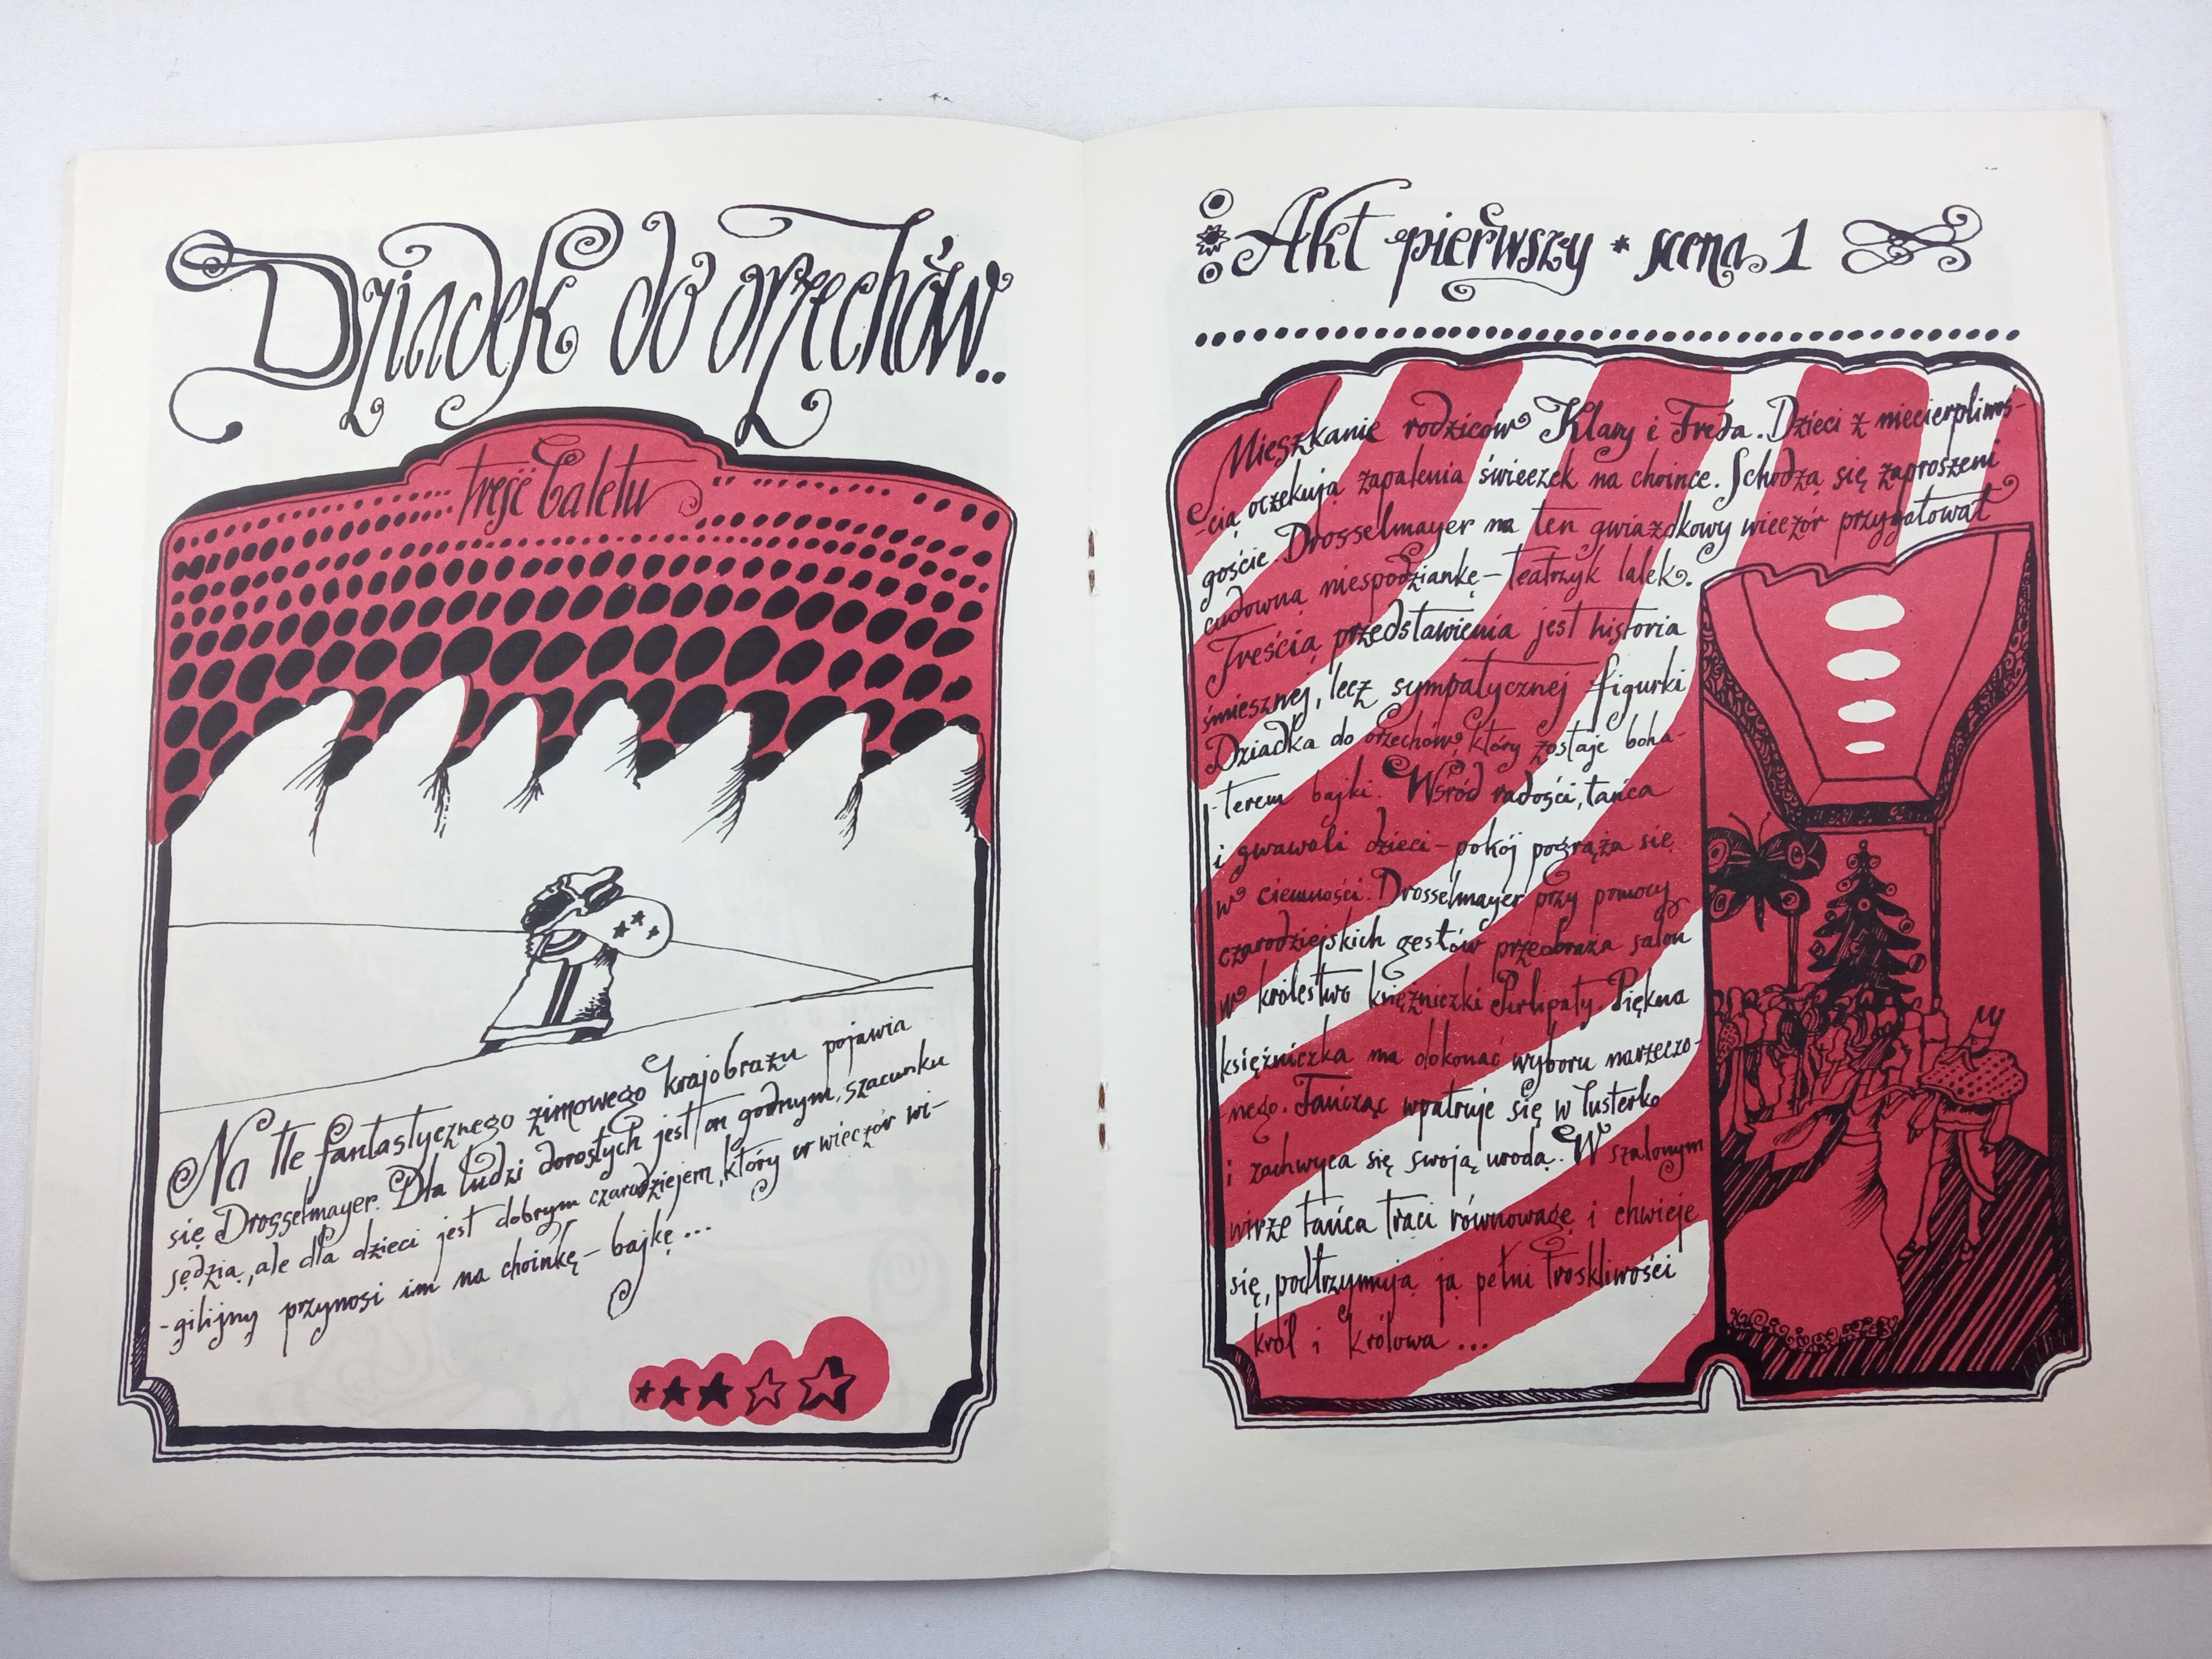 Dziadek do orzechów..
treść baletu
Na tle fantastycznego zimowego krajobrazu pojawia
się Drosselmayer. Dla ludzi dorosłych jest on godnym szacunku
sędzią, ale dla dzieci jest dobrym czarodziejem, który w wieczór wi-
-gilijny przynosi im na choinkę – bajkę ...
Akt pierwszy * scena 1
Mieszkanie rodziców Klary i Freda. Dzieci z niecierpliwoś-
-cią oczekują zapalenia świeczek na choince. Schodzą się zaproszeni
goście. Drosselmayer na ten gwiazdkowy wieczór przygotował
cudowną niespodziankę – teatrzyk lalek.
Treścią przedstawienia jest historia
śmiesznej, lecz sympatycznej figurki
Dziadka do orzechów, który zostaje boha-
-terem bajki. Wśród radości, tańca
i gwawoli dzieci – pokój pogrąża się
w ciemności. Drosselmayer przy pomocy
czarodziejskich gestów przeobraża salon
w królestwo księżniczki Pirlipaty. Piękna
księżniczka ma dokonać wyboru narzeczo-
-nego. Tańcząc wpatruje się w lusterko
i zachwyca się swoją urodą. W szalonym
wirze tańca traci równowagę i chwieje
się, podtrzymują ją pełni troskliwości
król i królowa ...